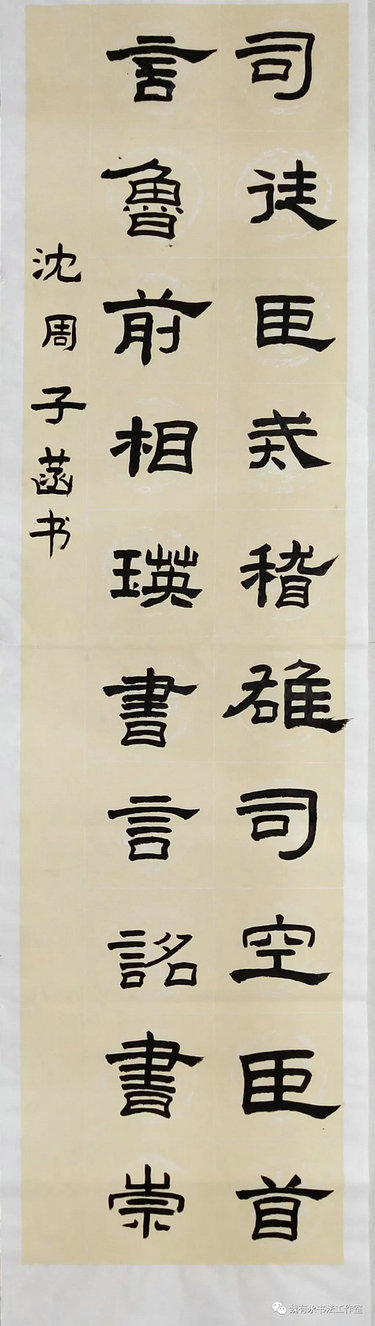 司徒臣戒稽雄司空臣首
言魯前相瑛書言詔書崇
沈周子菡书
有永书法工作室